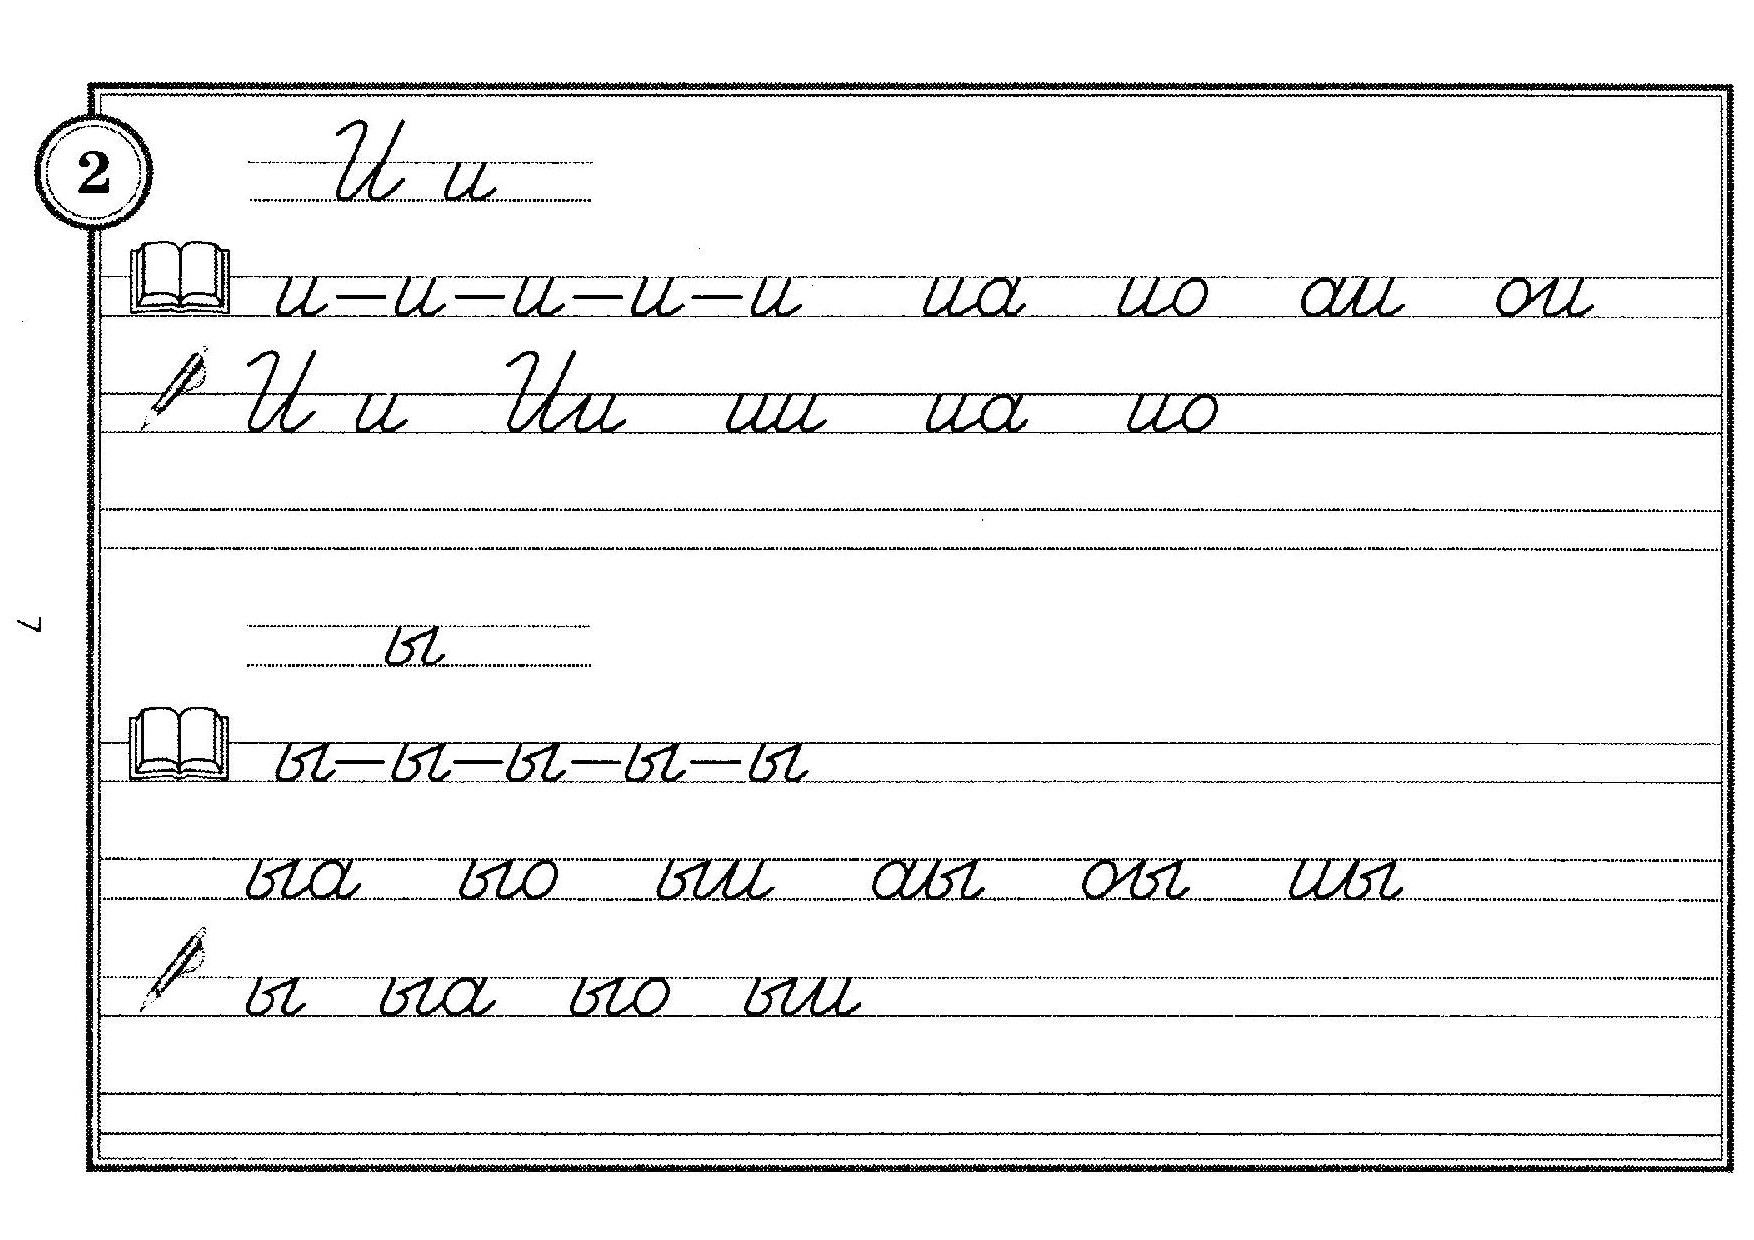 2
И и
и—и—и—и—и иа ио аи ои
И и Ии ии иа ио
ы
ы—ы—ы—ы—ы
ыа ыо ыи аы оы иы
ы ыа ыо ыи
7